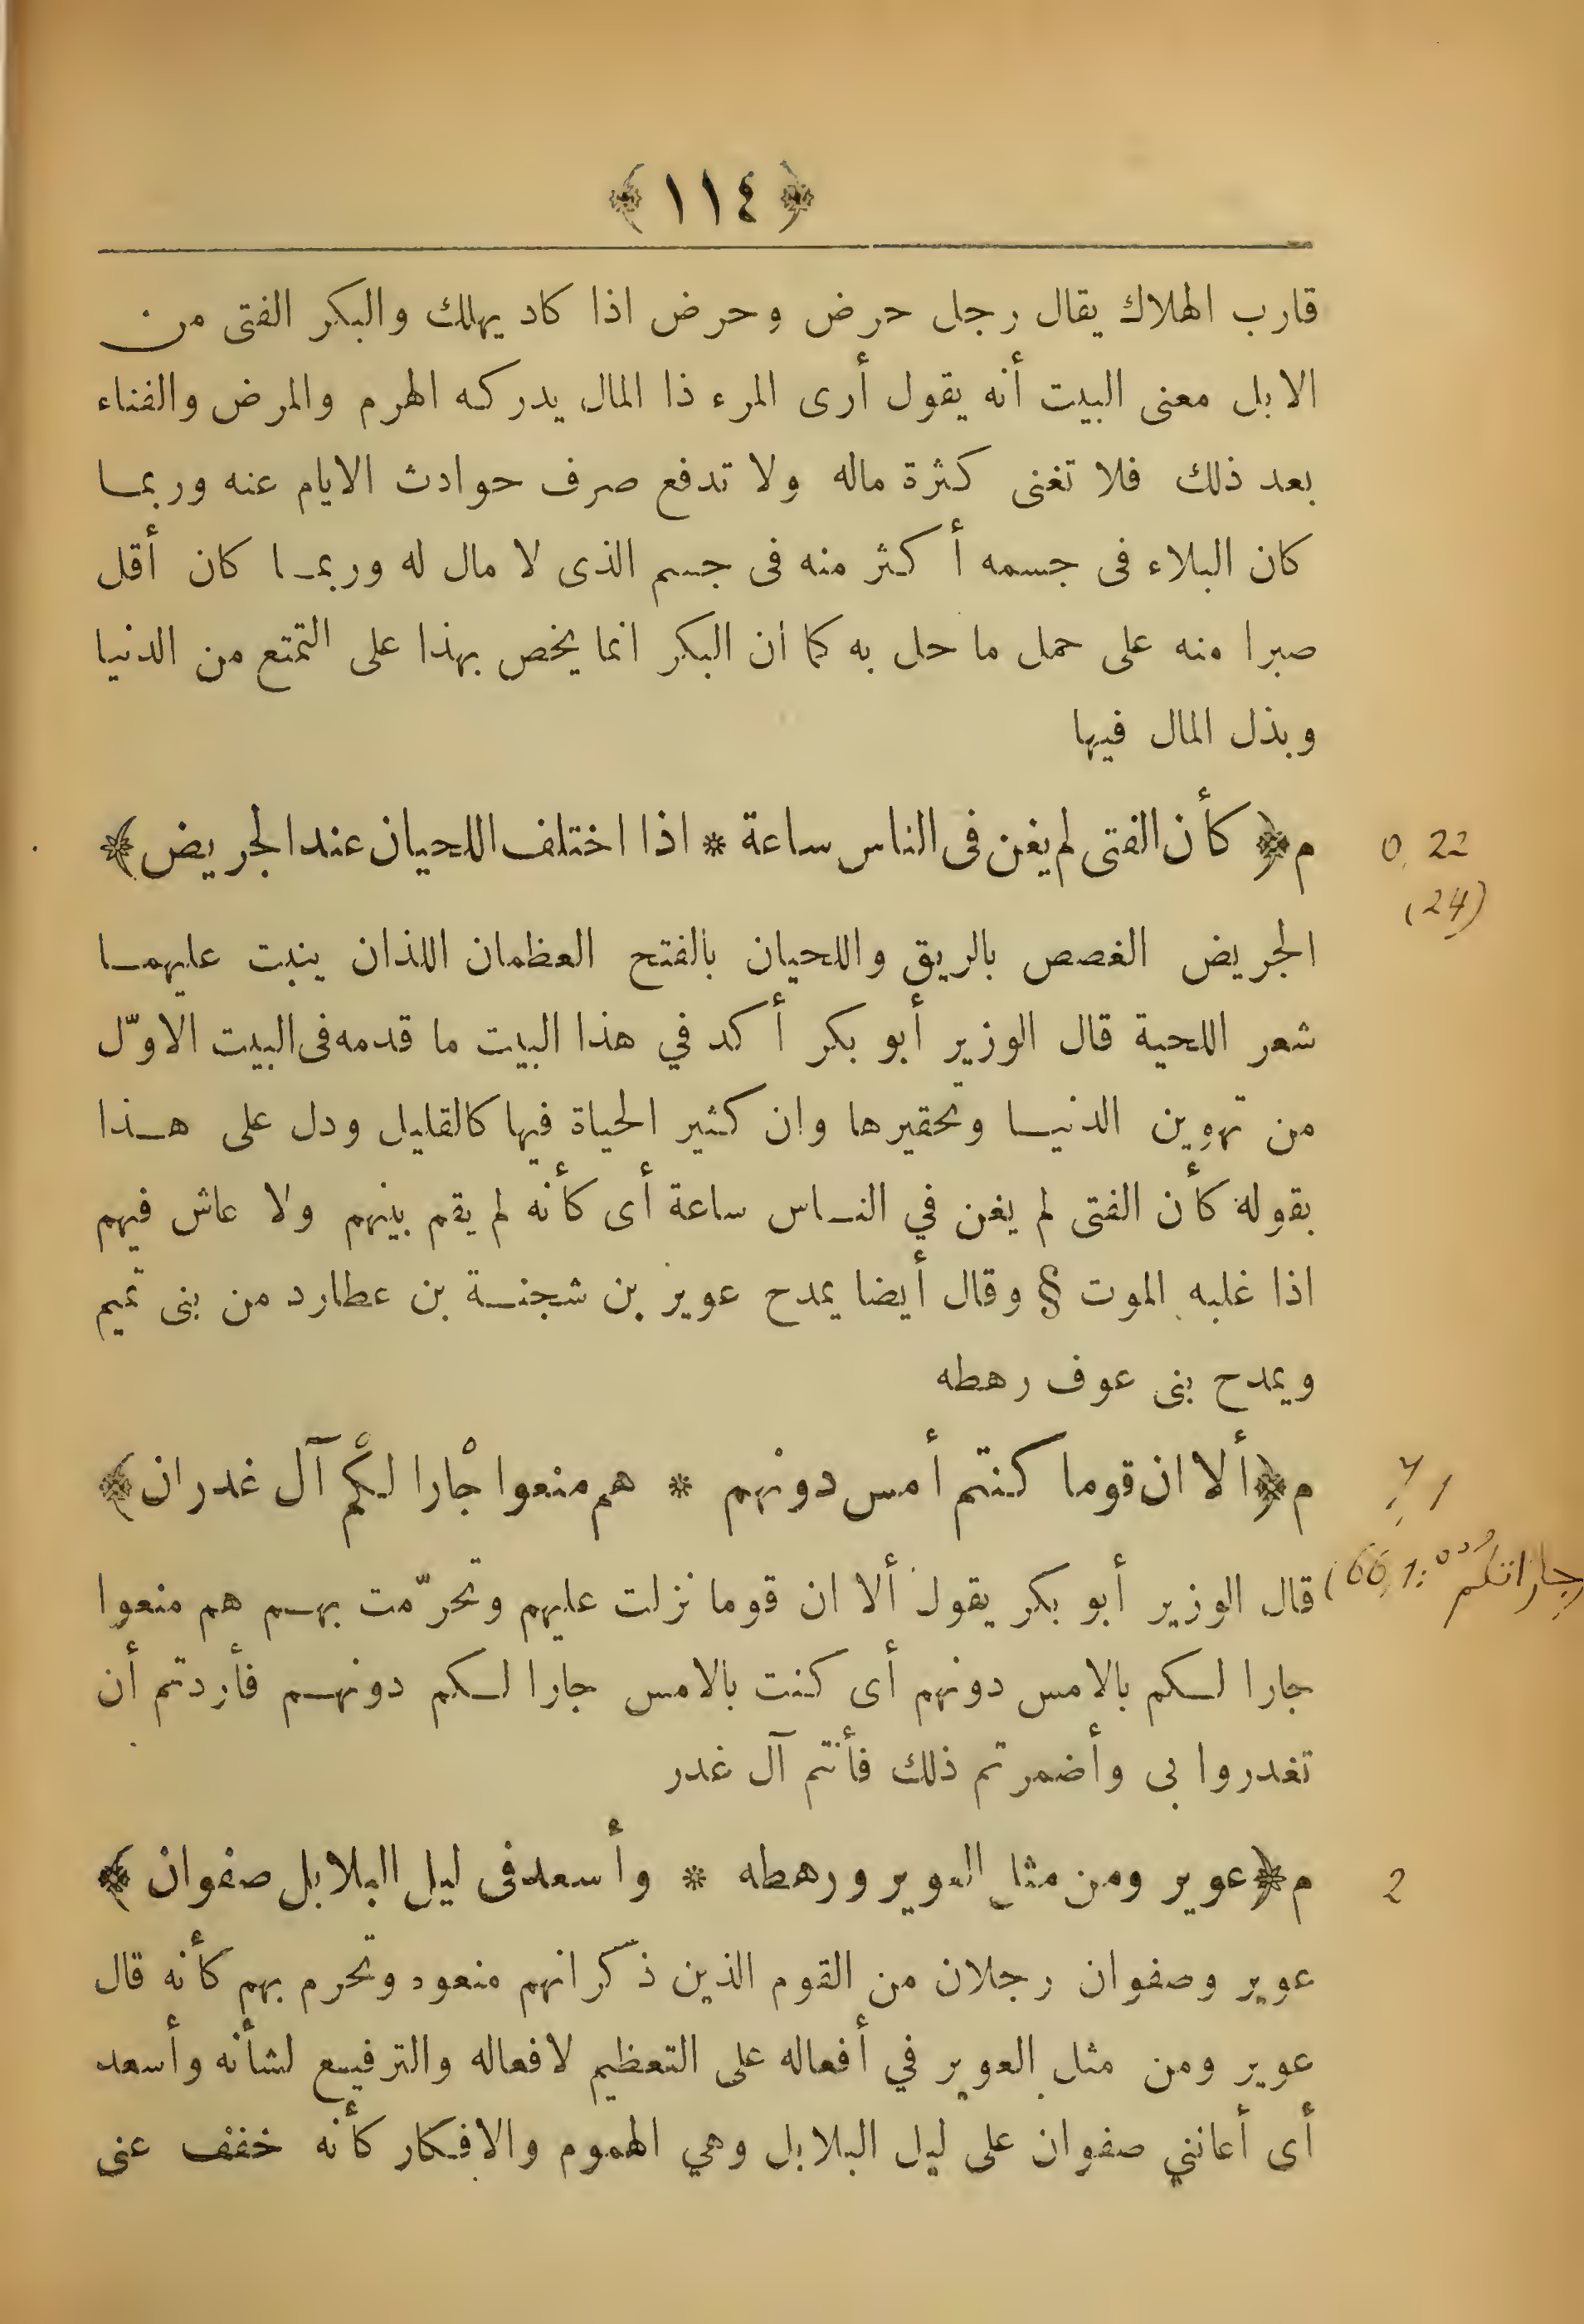 ﴿١١٤﴾
قارب الهلاك يقال رجل حرض وحرض اذا كاد يهلك والبكر الفتى من
الابل معنى البيت أنه يقول أرى المرء ذا المال يدركه الهرم والمرض والفناء
بعد ذلك فلا تغنى كثرة ماله ولا تدفع صرف حوادث الايام عنه وربما
كان البلاء فى جسمه أكثر منه فى جسم الذى لا مال له وربما كان أقل
صبرا منه على حمل ما حل به كما أن البكر انما يخص بهذا على التمتع من الدنيا
وبذل المال فيها
م﴿كأن الفتى لم يغن فى الناس ساعة * اذا اختلف اللحيان عند الجريض﴾
0, 22
(24)
الجريض الغصص بالريق واللحيان بالفتح العظمان اللذان ينبت عليهما
شعر اللحية قال الوزير أبو بكر أكد في هذا البيت ما قدمه فى البيت الاوّل
من تهوين الدنيا وتحقيرها وان كثير الحياة فيها كالقليل ودل على هذا
بقوله كأن الفتى لم يغن في الناس ساعة أى كأنه لم يقم بينهم ولا عاش فيهم
اذا غلبه الموت § وقال أيضا يمدح عوير بن شجنة بن عطارد من بنى تميم
ويمدح بنى عوف رهطه
م﴿ألا ان قوما كنتم أمس دونهم * هم منعوا جْارا لكْم آل غدران﴾
1
قال الوزير أبو بكر يقول ألا ان قوما نزلت عليهم وتحرّمت بهم هم منعوا
(66,1: جاراتكم
جارا لكم بالامس دونهم أى كنت بالامس جارا لكم دونهم فأردتم أن
تغدروا بى وأضمرتم ذلك فأنتم آل غدر
م﴿عوير ومن مثل العوير ورهطه * وأسعد فى ليل البلابل صفوان﴾
2
عوير وصفوان رجلان من القوم الذين ذكر انهم منعوه وتحرم بهم كأنه قال
عوير ومن مثل العوير في أفعاله على التعظيم لافعاله والترفيع لشأنه وأسعد
أى أعانني صفوان على ليل البلابل وهي الهموم والافكار كأنه خفف عنى